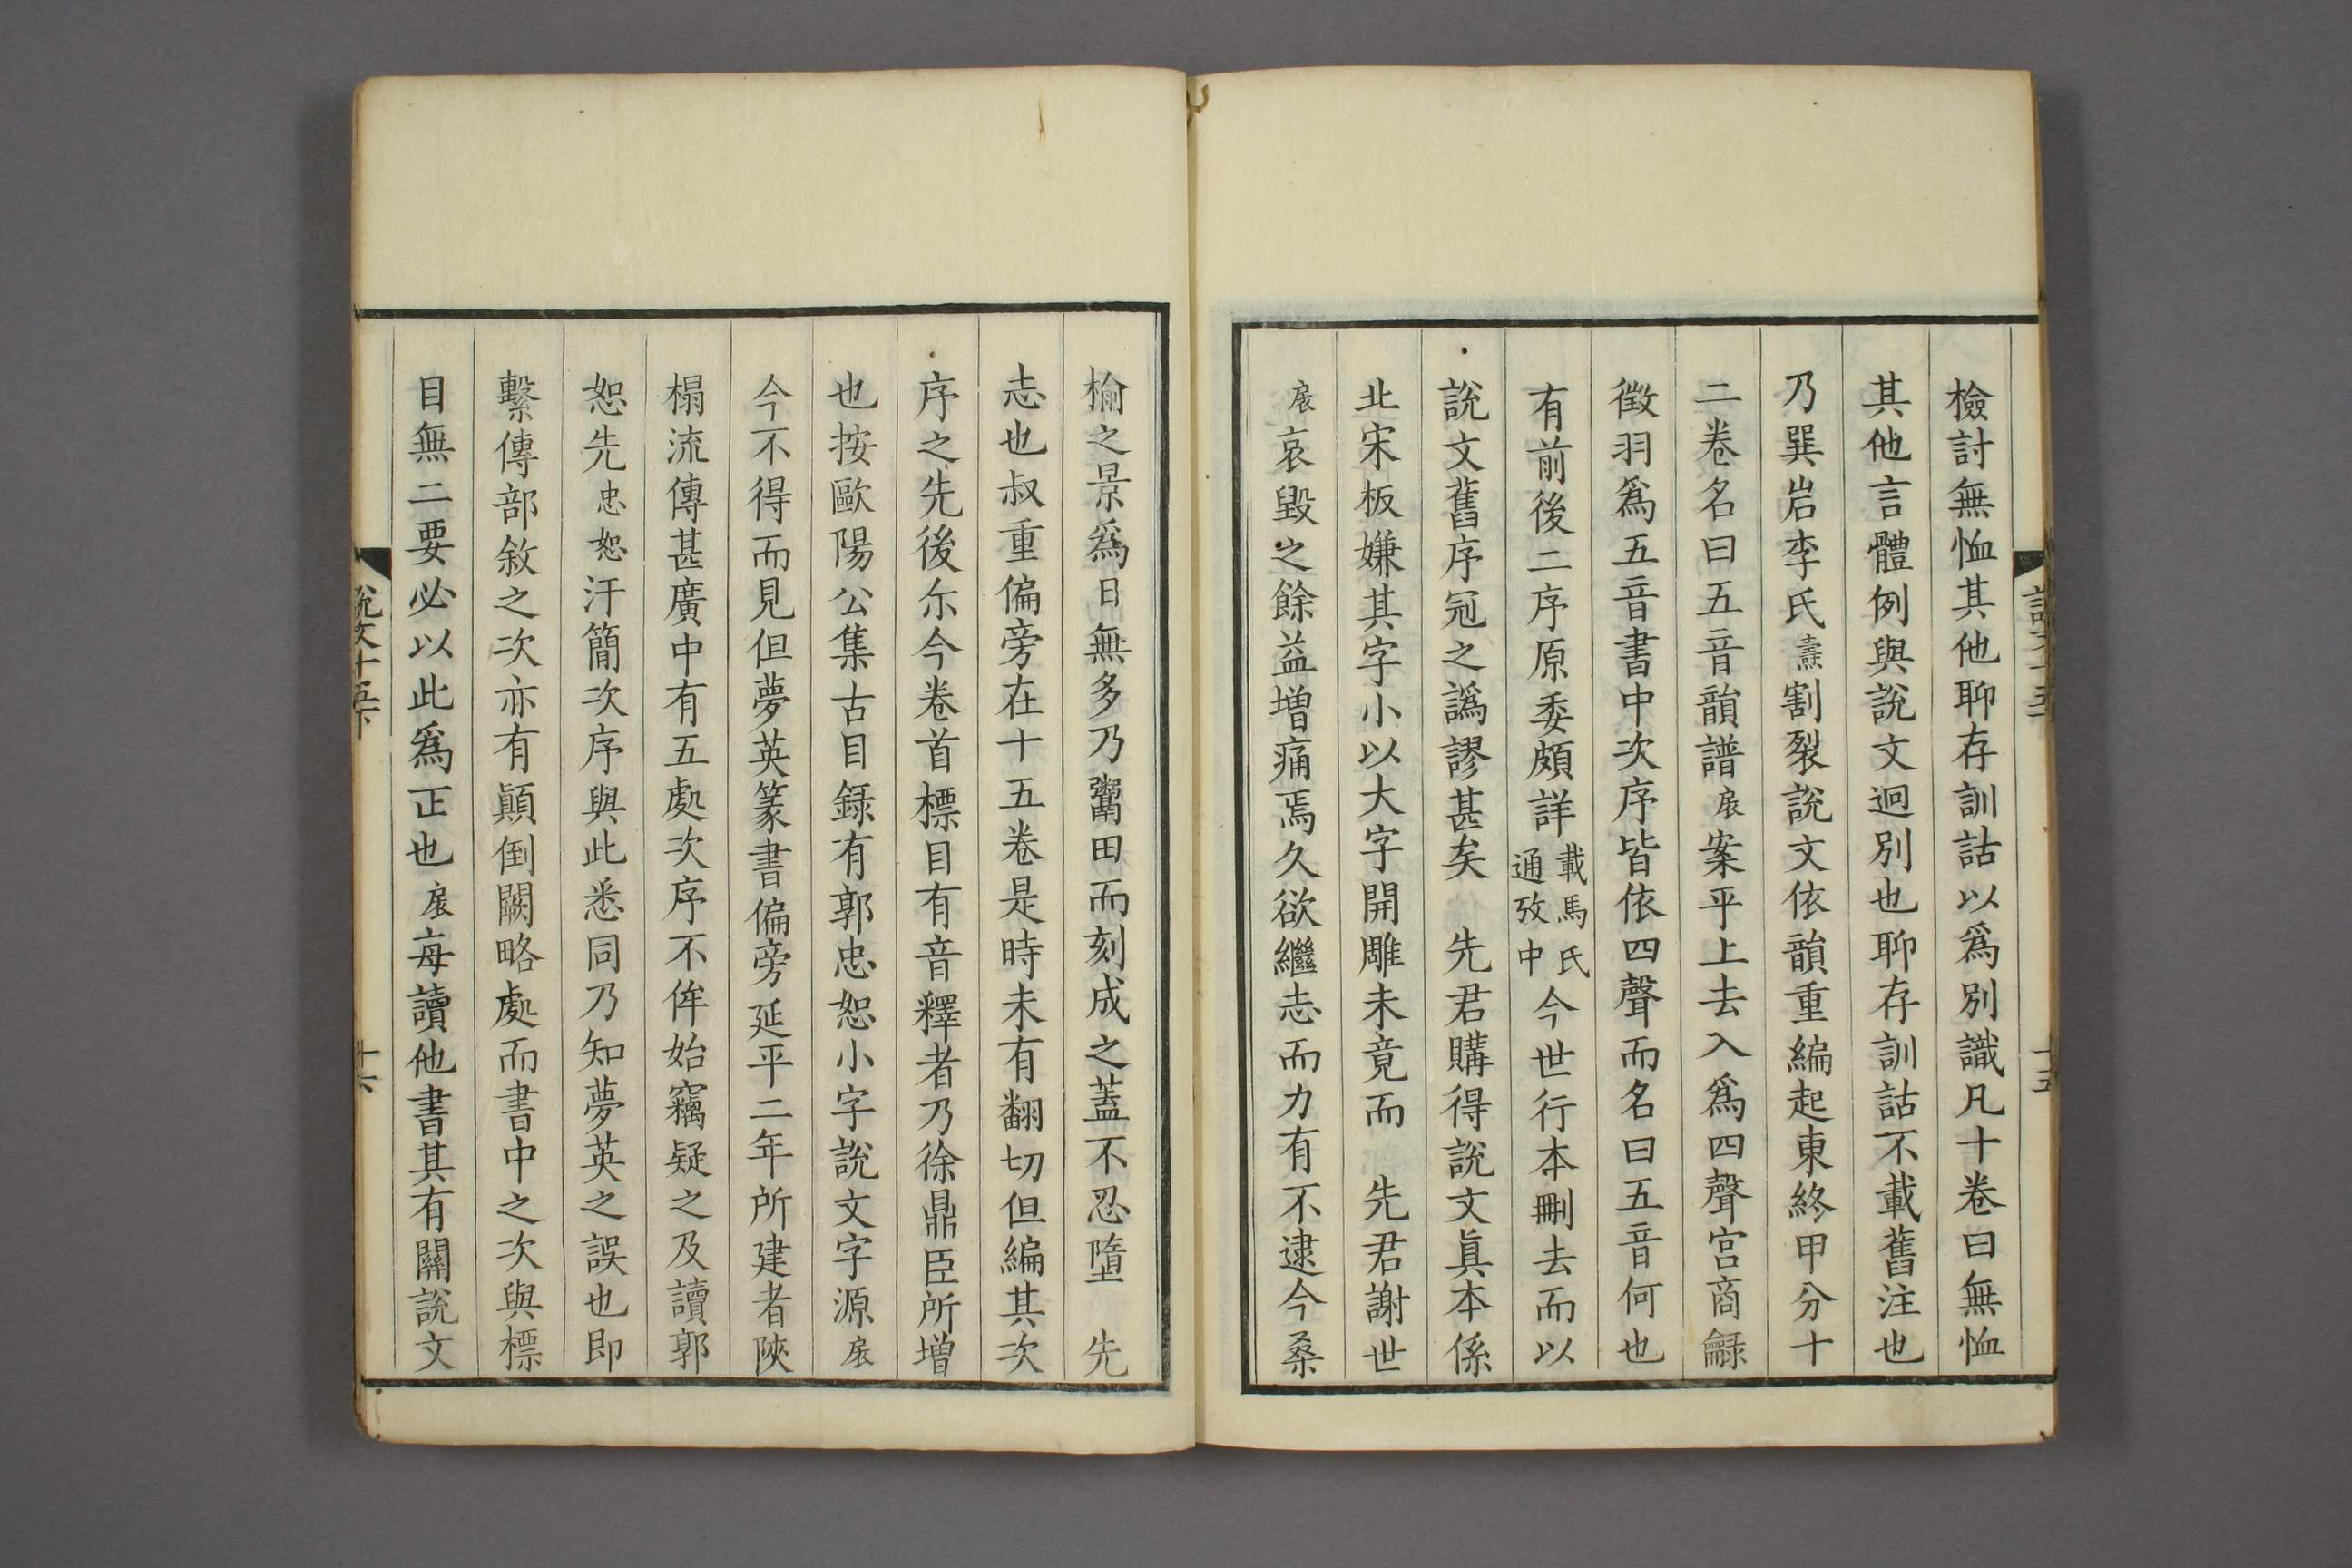 檢討無恤其他聊存訓詁以爲別識凡十卷曰無恤
其他言體例與說文迥別也聊存訓詁不載舊注也
乃巽岩李氏燾割裂說文依韻重編起東終甲分十
二卷名曰五音韻譜扆案平上去入爲四聲宫商龣
徵羽爲五音書中次序皆依四聲而名曰五音何也
有前後二序原委頗詳載馬氏通攷中今世行本刪去而以
說文舊序冠之譌謬甚矣　先君購得說文眞本係
北宋板嫌其字小以大字開雕未竟而　先君謝世
扆哀毀之餘益增痛焉久欲繼志而力有不逮今桑
榆之景爲日無多乃鬻田而刻成之蓋不忍墮　先
志也叔重偏旁在十五卷是時未有翻切但編其次
序之先後尒今卷首標目有音釋者乃徐鼎臣所增
也按歐陽公集古目録有郭忠恕小字說文字源扆
今不得而見但夢英篆書偏旁延平二年所建者陝
榻流傳甚廣中有五處次序不侔始竊疑之及讀郭
恕先忠恕汗簡次序與此悉同乃知夢英之誤也即
繫傳部敘之次亦有顚倒闕略處而書中之次與標
目無二要必以此爲正也扆每讀他書其有關說文
說文十五下
十六
十五